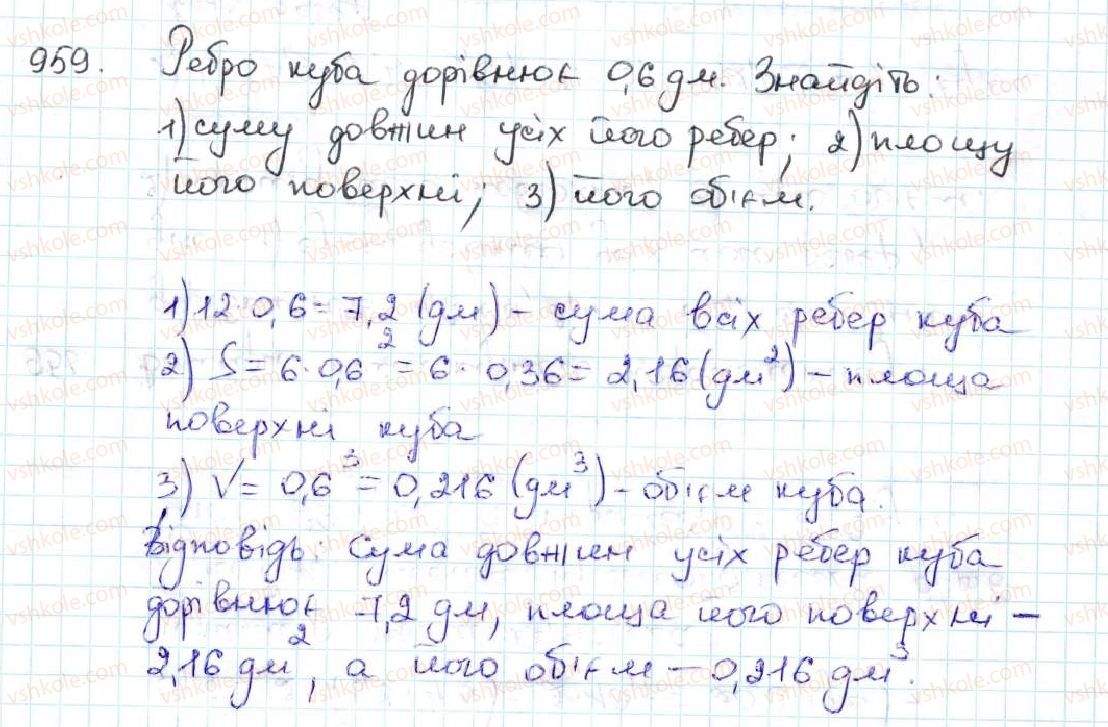 959. Ребро куба дорівнює 0,6 дм. Знайдіть:
1) суму довжин усіх його ребер; 2) площу
його поверхні; 3) його об'єм.
1) 12·0,6 = 7,2 (дм) – сума всіх ребер куба
2) S = 6·0,6² = 6·0,36 = 2,16 (дм²) – площа
поверхні куба
3) V = 0,6³ = 0,216 (дм³) – об'єм куба.
Відповідь: Сума довжин усіх ребер куба
дорівнює 7,2 дм, площа його поверхні –
2,16 дм², а його об'єм – 0,216 дм³.